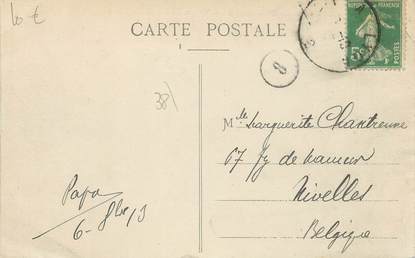 10 €
CARTE POSTALE
RÉPUBLIQUE FRANÇAISE
5c
8
38
Mlle Marguerite Chantrenne
67 fg de namur
Nivelles
Belgique
Papa
6-8bre/13